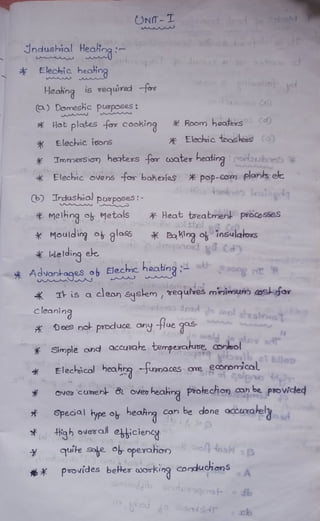 UNIT - I
Industrial Heating :-
* Electric heating
Heating is required for
(a) Domestic purposes :
* Hot plates for cooking * Room heaters
* Electric irons * Electric toasters
* Immersion heaters for water heating
* Electric ovens for bakeries * pop-corn plants etc
(b) Industrial purposes :-
* Melting of Metals * Heat treatment processes
* Moulding of glass * Baking of insulators
* Welding etc
* Advantages of Electric heating :-
* It is a clean system, requires minimum cost for
cleaning
* Does not produce any flue gas
* Simple and accurate temperature control
* Electrical heating furnaces are economical
* over current & over heating protection can be provided
* Special type of heating can be done accurately
* High overall efficiency
* quite safe of operation
* * provides better working conductions